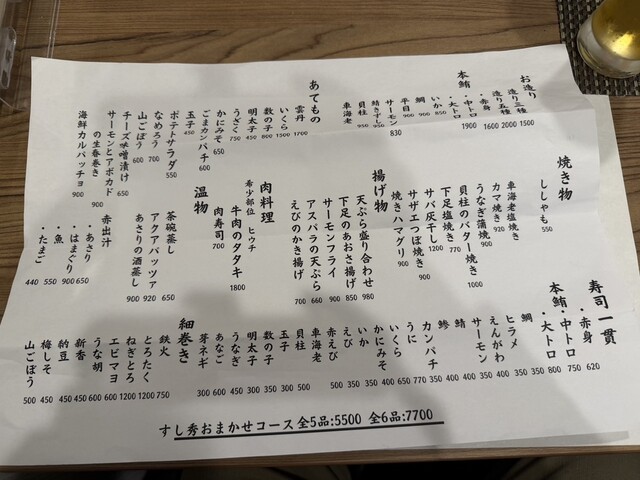 お造り
造り三種 1500
造り五種 2000
本鮪
・赤身 1600
・中トロ 1900
・大トロ
いか
鯛 900
平目 900
サーモン 830
貝柱 950
車海老
あてもの
雲丹 1700
いくら 1500
数の子 800
明太子 450
うざく 750
かにみそ 650
ごまカンパチ 600
玉子 450
ポテトサラダ 550
なめろう 700
山ごぼう 600
チーズ味噌漬け 650
サーモンとアボカド
の生春巻き 900
海鮮カルパッチョ 900
焼き物
ししゃも 550
車海老塩焼き
カマ焼き 920
うなぎ蒲焼 900
貝柱のバター焼き 1000
下足塩焼き 770
サバ灰干し 1200
サザエつぼ焼き 900
焼きハマグリ 900
揚げ物
天ぷら盛り合わせ 980
下足のあおさ揚げ 850
サーモンフライ 900
アスパラの天ぷら 660
えびのかき揚げ 700
肉料理
希少部位 ヒウチ
牛肉のタタキ 1800
肉寿司 700
温物
茶碗蒸し 650
アクアパッツァ 920
あさりの酒蒸し 900
赤出汁
・あさり 650
・はまぐり 900
・魚 550
・たまご 440
寿司一貫
本鮪
・赤身 620
・中トロ 750
・大トロ 800
鯛
ヒラメ 350
えんがわ
サーモン
鯖 400
鯵
カンパチ
うに 770
いくら 650
かにみそ 400
いか 350
えび 350
赤えび
車海老 500
貝柱
玉子
数の子 300
明太子 300
うなぎ 450
あなご 600
芽ネギ 300
細巻き
鉄火 750
とろたく 1200
ねぎとろ 1200
エビマヨ 600
うな胡 600
新香 450
納豆 450
梅しそ 450
山ごぼう 500
すし秀おまかせコース全5品:5500 全6品:7700